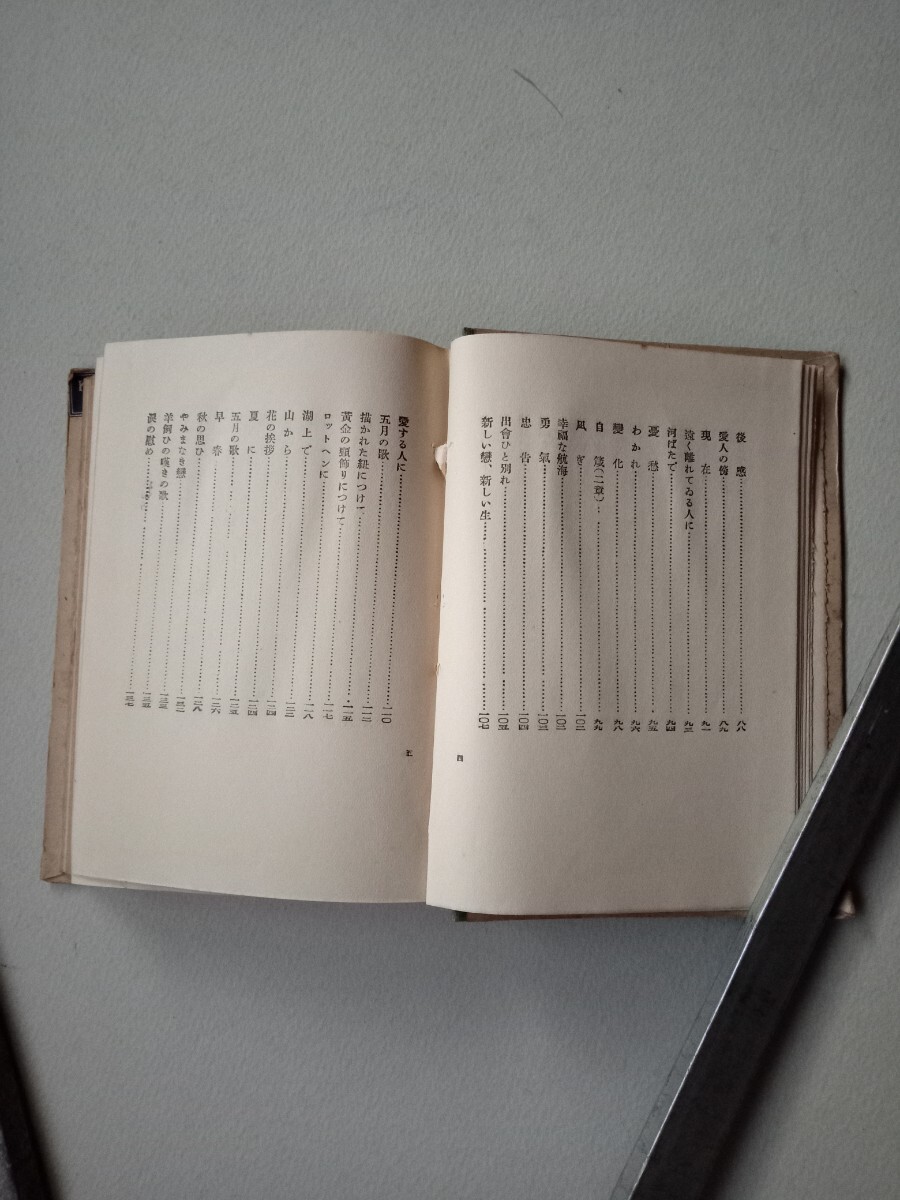 後感……八八
愛人の傍……八九
現在……九一
遠く離れてゐる人に……九三
河ばたで……九四
憂愁……九五
わかれ……九六
變化……九八
自箴(二章)……九九
凪ぎ……一〇二
幸福な航海……一〇二
勇氣……一〇三
忠告……一〇四
出會ひと別れ……一〇五
新しい戀、新しい生……一〇七
四
愛する人に
五月の歌……一一〇
描かれた紐につけて……一一二
黃金の頸飾りにつけて……一一五
ロツトヘンに……一一七
湖上で……一一八
山から……一二二
花の挨拶……一二四
夏に……一二四
五月の歌……一二五
早春……一二六
秋の思ひ……一二八
やみまなき戀……一三二
羊飼ひの嘆きの歌……一三三
淚の慰め……一三五
一三七
五